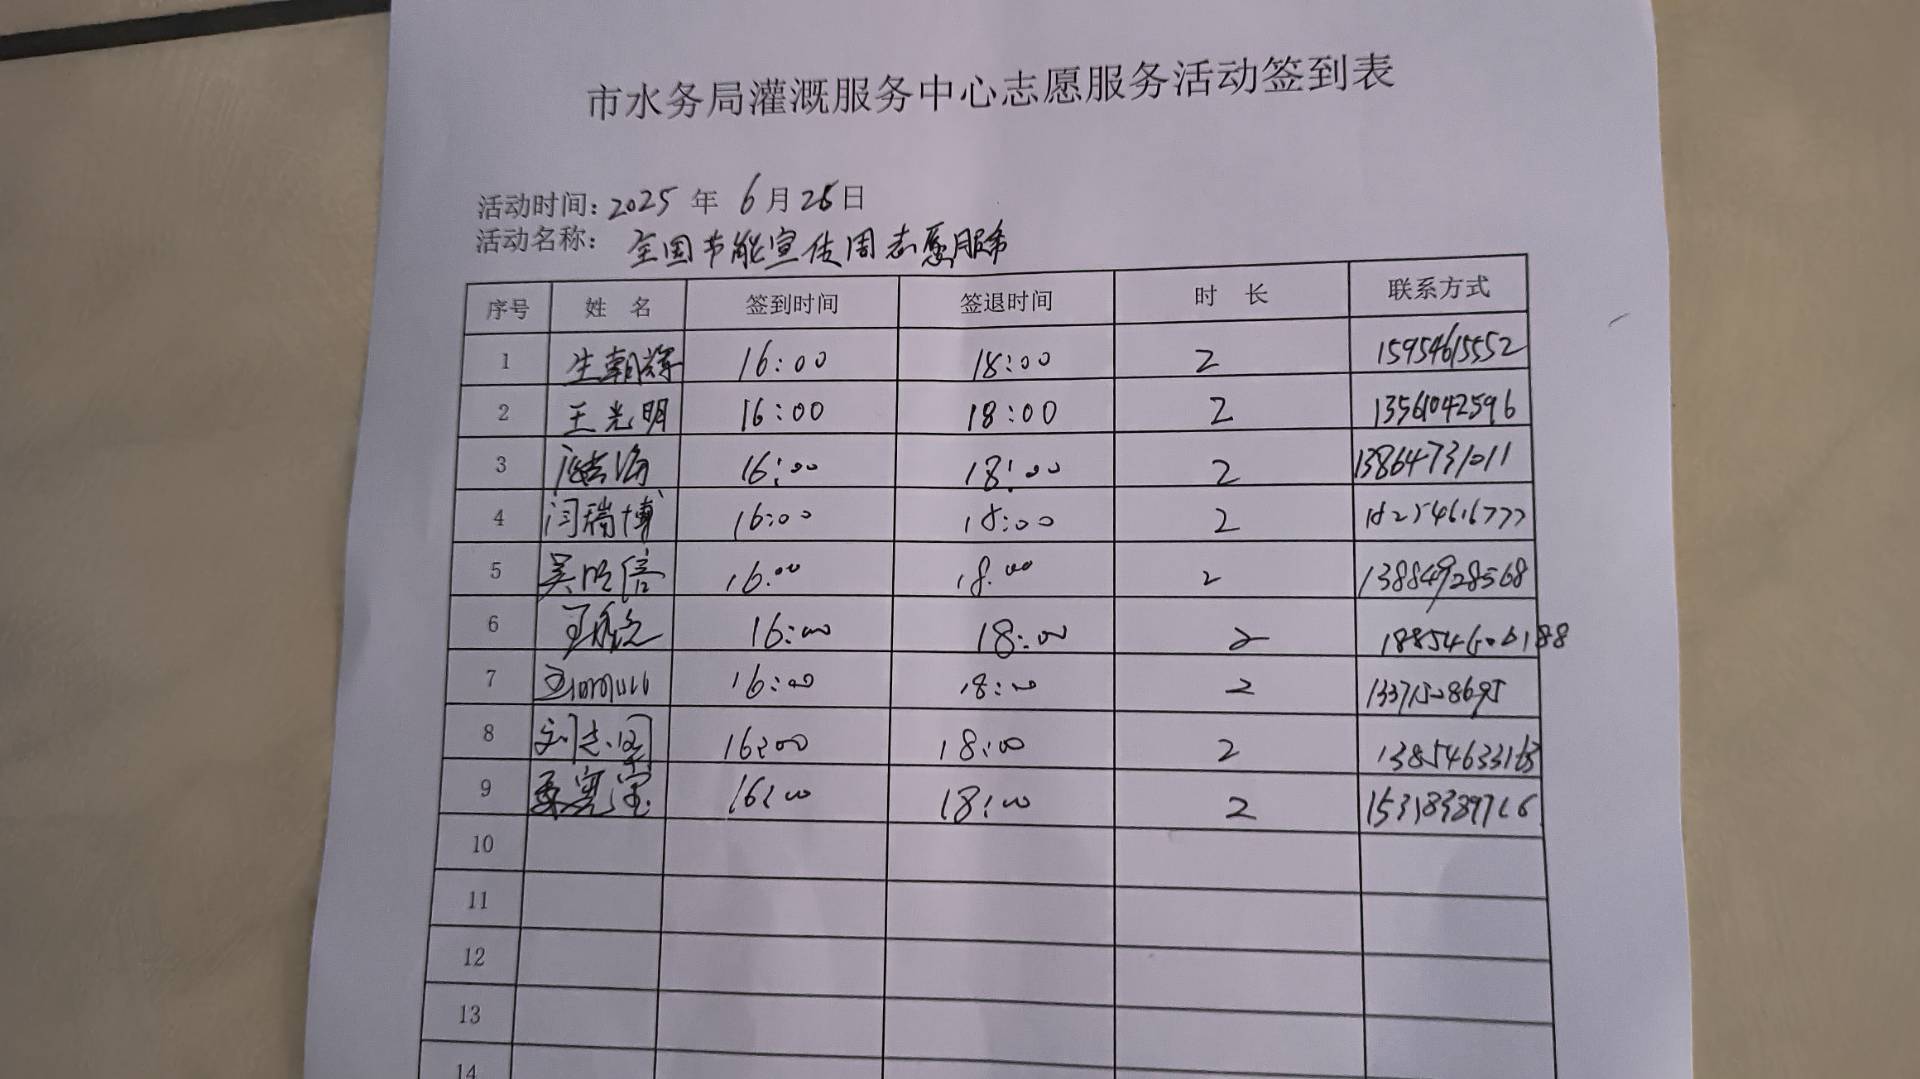 市水务局灌溉服务中心志愿服务活动签到表
活动时间: 2025 年 6月 26日
活动名称: 全国节能宣传周志愿服务
序号 姓 名 签到时间 签退时间 时 长 联系方式
1 生朝辉 16:00 18:00 2 15954615552
2 王光明 16:00 18:00 2 13561042596
3 16:00 18:00 2 13864731011
4 闫瑞博 16:00 18:00 2
5 16:00 18:00 2 13884928568
6 16:00 18:00 2
7 16:00 18:00 2
8 16:00 18:00 2
9 16:00 18:00 2
10
11
12
13
14